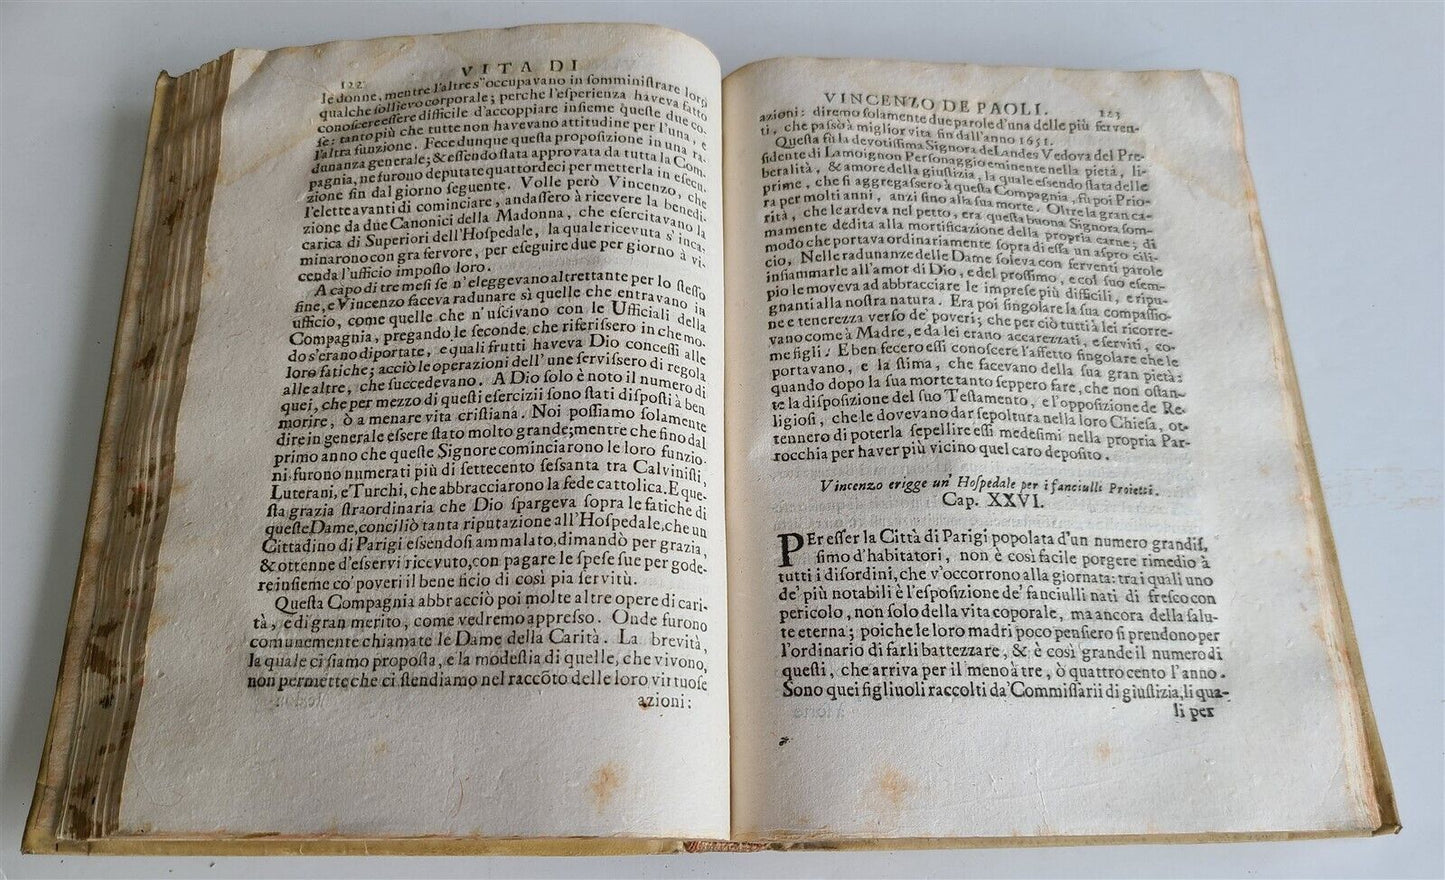 122 VITA DI
le donne, mentre l'altre s'occupavano in somministrare loro
qualche sollievo corporale; perche l'esperienza haveva fatto
conoscere essere difficile d'accoppiare insieme queste due co-
se: tanto più che tutte non havevano attitudine per l'una, e
l'altra funzione. Fece dunque questa proposizione in una ra-
dunanza generale; & essendo stata approvata da tutta la Com-
pagnia, ne furono deputate quattordeci per metterla in esecu-
zione fin dal giorno seguente. Volle però Vincenzo, che
l'elette avanti di cominciare, andassero à ricevere la benedi-
zione da due Canonici della Madonna, che esercitavano la
carica di Superiori dell'Hospedale, la quale ricevuta s'inca-
minarono con gra fervore, per eseguire due per giorno à vi-
cenda l'ufficio imposto loro.
A capo di tre mesi se n'eleggevano altrettante per lo stesso
fine, e Vincenzo faceva radunare sì quelle che entravano in
ufficio, come quelle che n'uscivano con le Ufficiali della
Compagnia, pregando le seconde che riferissero in che mo-
do s'erano diportate, e quali frutti haveva Dio concessi alle
loro fatiche; acciò le operazioni dell'une servissero di regola
alle altre, che succedevano. A Dio solo è noto il numero di
quei, che per mezo di questi esercizii sono stati disposti à ben
morire, ò a menare vita cristiana. Noi possiamo solamente
dire in generale essere stato molto grande; mentre che fino dal
primo anno che queste Signore cominciarono le loro funzio-
ni furono numerati più di settecento sessanta tra Calvinisti,
Luterani, e Turchi, che abbracciarono la fede cattolica. E que-
sta grazia straordinaria che Dio spargeva sopra le fatiche di
queste Dame, conciliò tanta riputazione all'Hospedale, che un
Cittadino di Parigi essendosi ammalato, dimandò per grazia,
& ottenne d'esservi ricevuto, con pagare le spese sue per gode-
re insieme co' poveri il bene ficio di così pia servitù.
Questa Compagnia abbracciò poi molte altre opere di cari-
tà, e di gran merito, come vedremo appresso. Onde furono
comunemente chiamate le Dame della Carità. La brevità,
la quale ci siamo proposta, e la modestia di quelle, che vivono,
non permette che ci stendiamo nel raccôto delle loro virtuose
azioni:
VINCENZO DE PAOLI. 123
azioni: diremo solamente due parole d'una delle più serven-
ti, che passò à miglior vita fin dall'anno 1651.
Questa fù la devotissima Signora de Landes Vedova del Pre-
sidente di Lamoignon Personaggio eminente nella pietà, li-
beralità, & amore della giustizia, la quale essendo stata delle
prime, che si aggregassero à questa Compagnia, fù poi Prio-
ra per molti anni, anzi fino alla sua morte. Oltre la gran ca-
rità, che le ardeva nel petto, era questa buona Signora som-
mamente dedita alla mortificazione della propria carne; di
modo che portava ordinariamente sopra di essa un aspro cili-
cio. Nelle radunanze delle Dame soleva con serventi parole
infiammarle all'amor di Dio, e del prossimo, e col suo esem-
pio le moveva ad abbracciare le imprese più difficili, e ripu-
gnanti alla nostra natura. Era poi singolare la sua compassio-
ne e tenerezza verso de' poveri; che per ciò tutti à lei ricorre-
vano come à Madre, e da lei erano accarezzati, e serviti, co-
me figli. E ben fecero essi conoscere l'affetto singolare che le
portavano, e la stima, che facevano della sua gran pietà:
quando dopo la sua morte tanto seppero fare, che non ostan-
te la disposizione del suo Testamento, e l'opposizione de Re-
ligiosi, che le dovevano dar sepoltura nella loro Chiesa, ot-
tennero di poterla sepellire essi medesimi nella propria Par-
rocchia per haver più vicino quel caro deposito.
Vincenzo erigge un' Hospedale per i fanciulli Proietti.
Cap. XXVI.
PEr esser la Città di Parigi popolata d'un numero grandis,
simo d'habitatori, non è così facile porgere rimedio à
tutti i disordini, che v'occorrono alla giornata: tra i quali uno
de' più notabili è l'esposizione de' fanciulli nati di fresco con
pericolo, non solo della vita coporale, ma ancora della salu-
te eterna; poiche le loro madri poco pensiero si prendono per
l'ordinario di farli battezzare, & è così grande il numero di
questi, che arriva per il meno à tre, ò quattro cento l'anno.
Sono quei figliuoli raccolti da' Commissarii di giustizia, li qua-
li per